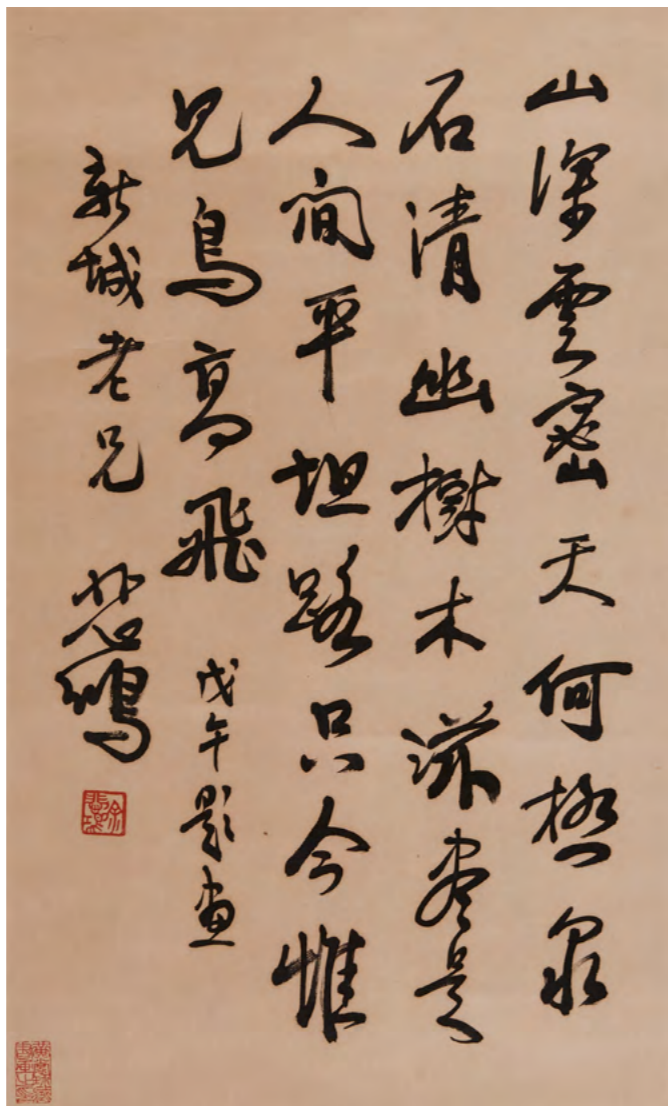 山深雲密天何極泉
石清幽樹木滋盡是
人間平坦路只今惟
見鳥高飛 戊午題畫
新城老兄 悲鴻